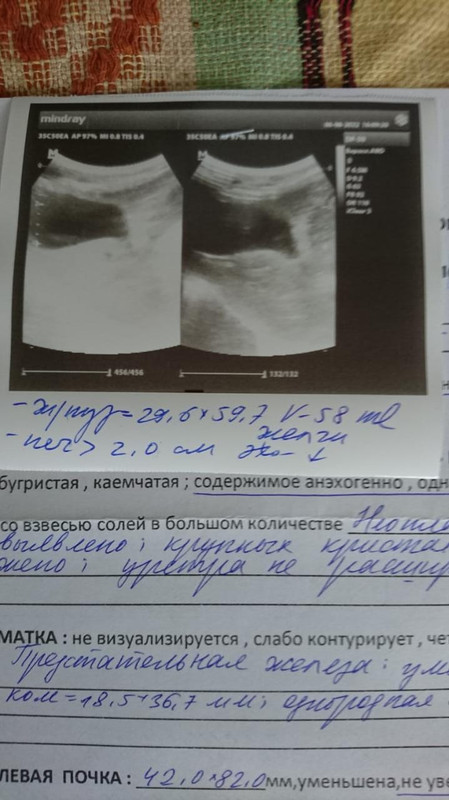 mindray
35C50EA AP 97% MI 0.8 TIS 0.4
35C50EA AP 97% MI 0.8 TIS 0.4
M
M
456/456
132/132
- ж/пуз = 29,6 × 59,7 V-58 ml
желчи
- печ > 2,0 см эхо- ↓
бугристая , каемчатая ; содержимое анэхогенно , одн
со взвесью солей в большом количестве
выявлено ; крупных кристал
жено ; уретра не расшир
МАТКА : не визуализируется , слабо контурирует , чет
Предстательная железа : ум
ком = 18,5 × 36,7 мм; однородная
ЛЕВАЯ ПОЧКА : 42,0×82,0 мм,уменьшена,не уве